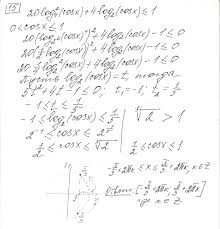 15
20log₄²(cosx)+4log₂(cosx)≤1
0<cosx≤1
20(log₄(cosx))²+4log₂(cosx)-1≤0
20(½log₂(cosx))²+4log₂(cosx)-1≤0
20·¼log₂²(cosx)+4log₂(cosx)-1≤0
Пусть log₂(cosx)=t, тогда
5t²+4t-1≤0; t₁=-1; t₂=1/5
-1≤t≤1/5
-1≤log₂(cosx)≤1/5
2⁻¹≤cosx≤2^(1/5)
⁵√2>1
½≤cosx≤⁵√2
½≤cosx≤1
-π/3+2πk≤x≤π/3+2πk, k∈Z
Ответ: [-π/3+2πk; π/3+2πk]
где k∈Z